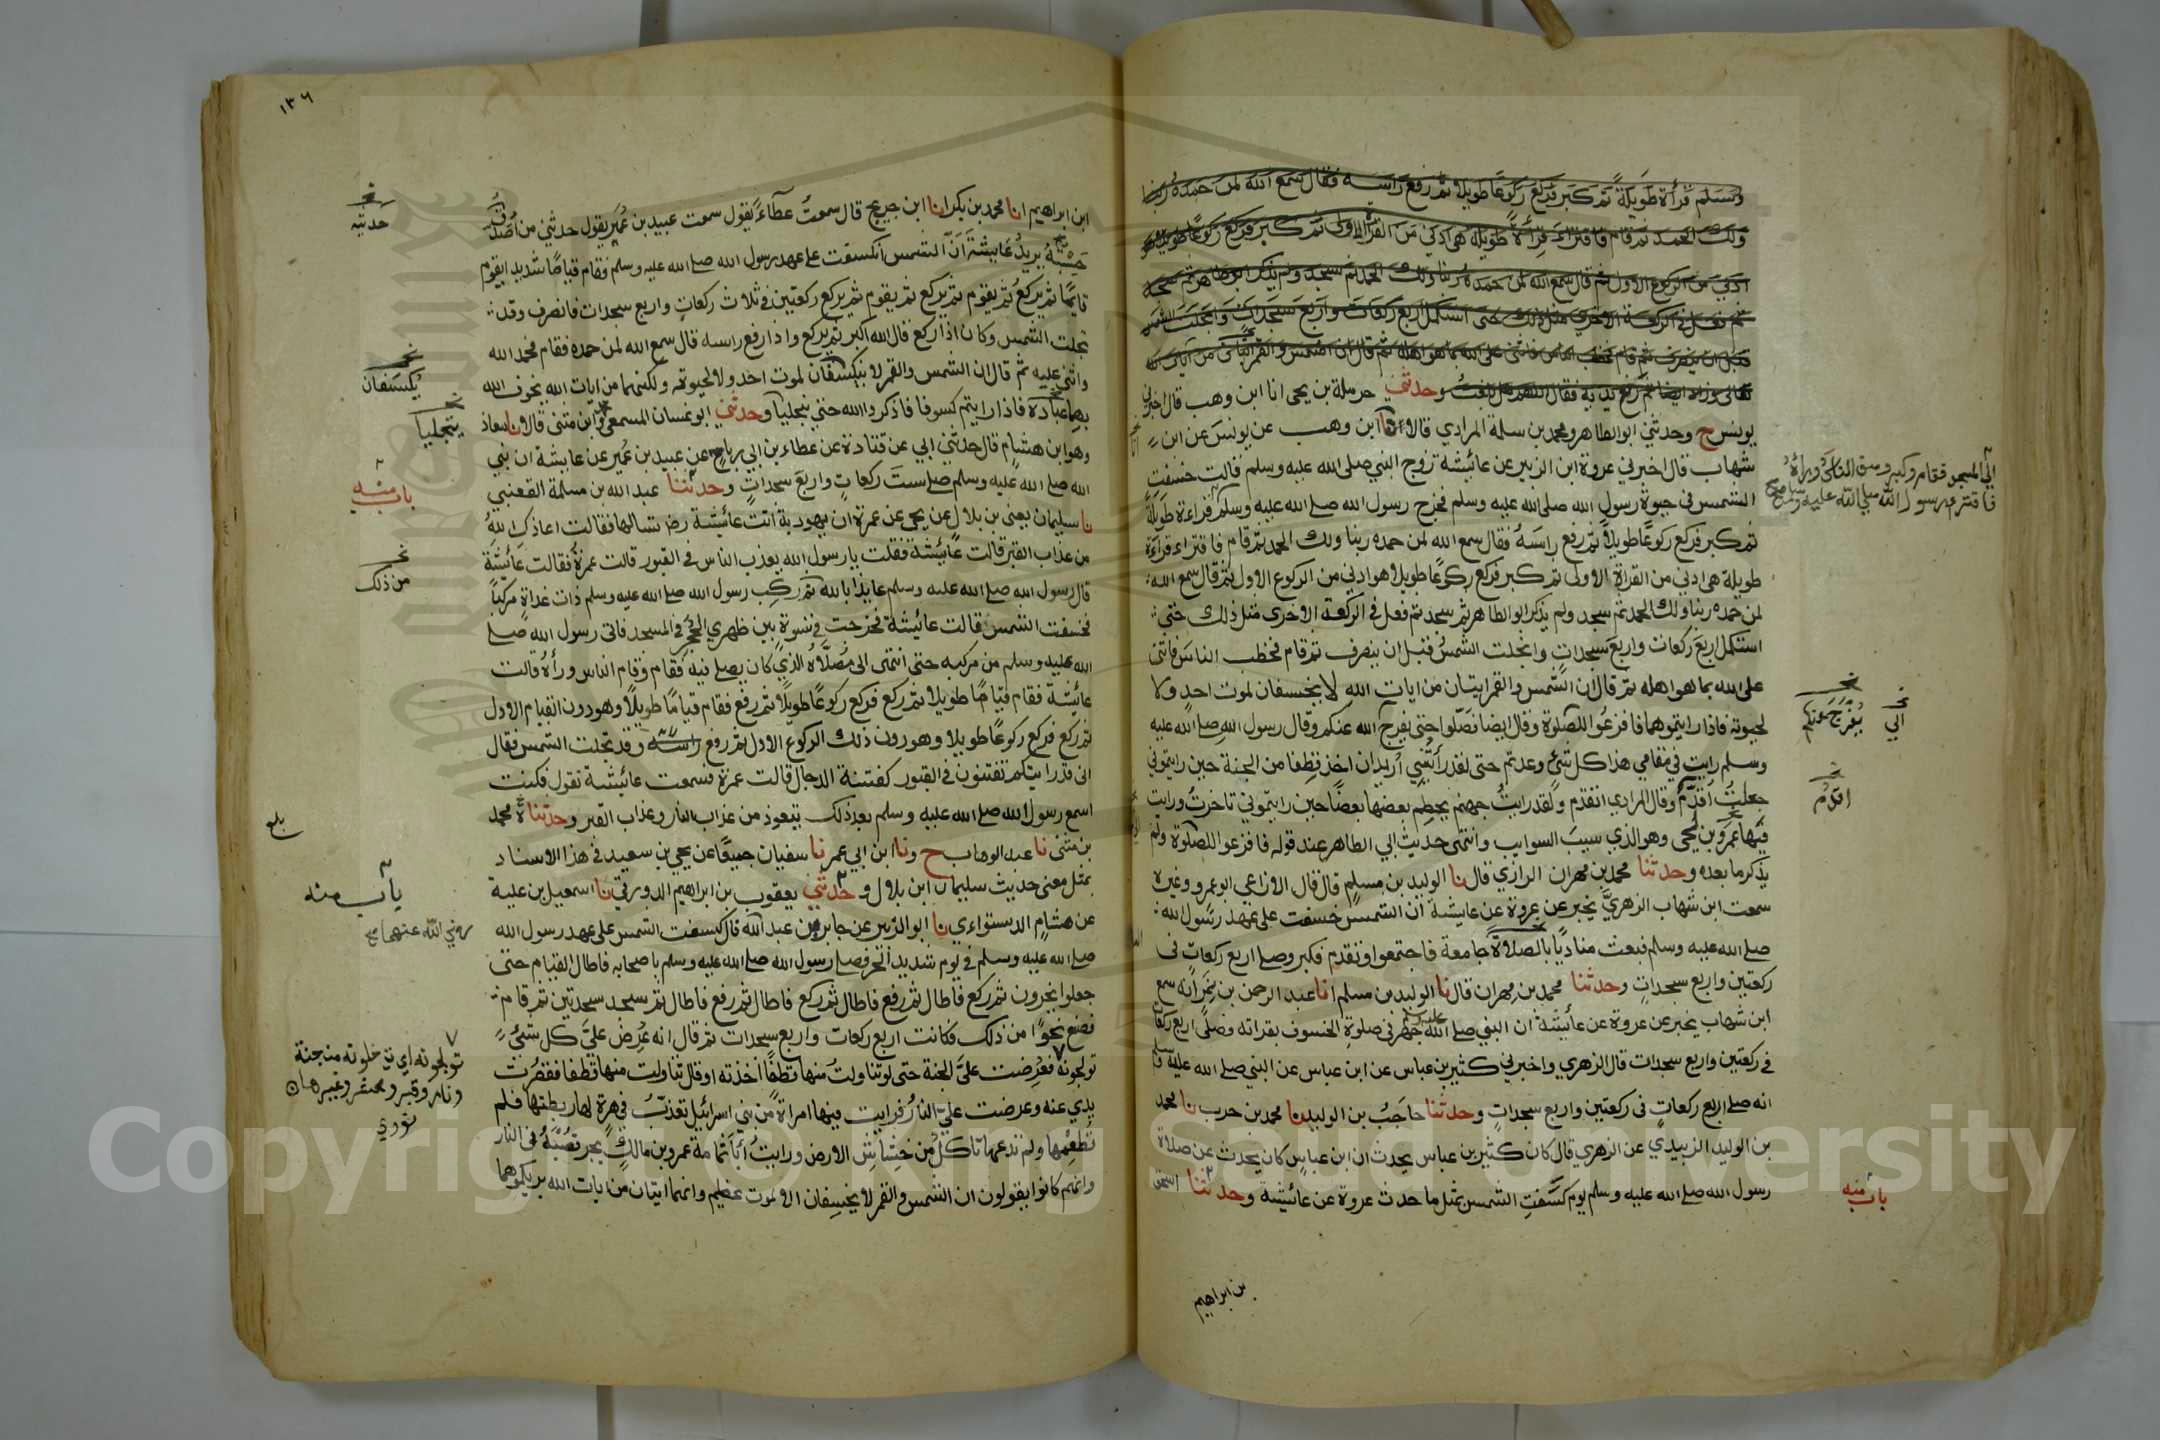 وسلم قرأة طويلة ثم كبر فركع ركوعا طويلا ثم رفع راسه فقال سمع الله لمن حمده ربنا
ولك الحمد ثم قام فاقتراء قرأة طويلة هي ادني من القرأة الاولي ثم كبر فركع ركوعا طويلا هو
ادني من الركوع الاول ثم قال سمع الله لمن حمده ربنا ولك الحمد ثم سجد ولم يذكر ابو طاهر ثم سجد
ثم فعل في الركعة الاخري مثل ذلك حتى استكمل اربع ركعات واربع سجدات وانجلت الشمس
قبل ان ينصرف ثم قام فخطب الناس فاثني على الله بما هو اهله ثم قال ان الشمس والقمر ايتان من ايات الله
تعالى وزاد ايضا ثم رفع يديه فقال اللهم هل بلغت وحدثني حرملة بن يحيى انا ابن وهب قال اخبرني
يونس ح وحدثني ابو الطاهر ومحمد بن سلمة المرادي قالا نا ابن وهب عن يونس عن ابن
شهاب قال اخبرني عروة ابن الزبير عن عائيشة زوج النبي صلى الله عليه وسلم قالت خسفت
الشمس في حيوة رسول الله صلى الله عليه وسلم فخرج رسول الله صلى الله عليه وسلم قراءة طويلة
ثم كبر فركع ركوعا طويلا ثم رفع راسه فقال سمع الله لمن حمده ربنا ولك الحمد ثم قام فاقتراء قراءة
طويلة هي ادني من القراة الاولى ثم كبر فركع ركوعا طويلا هو ادني من الركوع الاول ثم قال سمع الله
لمن حمده ربنا ولك الحمد ثم سجد ولم يذكر ابو الطاهر ثم سجد ثم فعل في الركعة الاخرى مثل ذلك حتى
استكمل اربع ركعات واربع سجدات وانجلت الشمس قبل ان ينصرف ثم قام فخطب الناس فاثنى
على الله بما هو اهله ثم قال ان الشمس والقمر ايتان من ايات الله لا يخسفان لموت احد ولا
لحيوته فاذا رايتموهما فافزعوا للصلوة وقال ايضا فصلوا حتى يفرج الله عنكم وقال رسول الله صلى الله عليه
وسلم رايت في مقامي هذا كل شئ وعدتم حتى لقد رأيتني اريد ان اخذ قطفا من الجنة حين رايتموني
جعلت اقدم وقال المرادي اتقدم ولقد رايت جهنم يحطم بعضها بعضا حين رايتموني تاخرت ورايت
فيها عمرو بن لحي وهو الذي سيب السوايب وانتهى حديث ابي الطاهر عند قوله فافزعوا للصلوة ولم
يذكر ما بعده وحدثنا محمد بن مهران الرازي قال نا الوليد بن مسلم قال قال الاوزاعي ابو عمرو وغيره
سمعت ابن شهاب الزهري يخبر عن عروة عن عايشة ان الشمس خسفت على عهد رسول الله
صلى الله عليه وسلم فبعث مناديا بالصلاة جامعة فاجتمعوا وتقدم فكبر وصلى اربع ركعات في
ركعتين واربع سجدات وحدثنا محمد بن مهران قال نا الوليد بن مسلم انا عبد الرحمن بن نمر انه سمع
ابن شهاب يخبر عن عروة عن عائيشة ان النبي صلى الله عليه وسلم جهر في صلوة الخسوف بقراته وصلى اربع ركعات
في ركعتين واربع سجدات قال الزهري واخبرني كثير بن عباس عن ابن عباس عن النبي صلى الله عليه وسلم
انه صلى اربع ركعات في ركعتين واربع سجدات وحدثنا حاجب بن الوليد نا محمد بن حرب نا محمد
بن الوليد الزبيدي عن الزهري قال كان كثير بن عباس يحدث ان ابن عباس كان يحدث عن صلاة
رسول الله صلى الله عليه وسلم يوم كسفت الشمس بمثل ما حدث عروة عن عائيشة وحدثنا اسحق
بن ابراهيم
الي المسجد فقام وكبر وصف الناس وراءه
فاقترء رسول الله صلى الله عليه وسلم صح
يفرج عنكم
الي
اقدم
باب منه
١٣٦
ابن ابراهيم انا محمد بن بكر انا ابن جريج قال سمعت عطاء يقول سمعت عبيد بن عمير يقول حدثني من اصدق
حسبته يريد عايشة ان الشمس انكسفت على عهد رسول الله صلى الله عليه وسلم فقام قياما شديدا يقوم
قايما ثم يركع ثم يقوم ثم يركع ثم يقوم ثم يركع ركعتين في ثلاث ركعات واربع سجدات فانصرف وقد
تجلت الشمس وكان اذا ركع قال الله اكبر ثم يركع واذا رفع راسه قال سمع الله لمن حمده فقام فحمد الله
واثنى عليه ثم قال ان الشمس والقمر لا ينكسفان لموت احد ولا لحيوته ولكنهما من ايات الله يخوف الله
بهما عباده فاذا رايتم كسوفا فاذكروا الله حتى ينجليا وحدثني ابو غسان المسمعي وابن مثنى قالا نا معاذ
وهو ابن هشام قال حدثني ابي عن قتادة عن عطاء بن ابي رباح عن عبيد بن عمير عن عايشة ان نبي
الله صلى الله عليه وسلم صلى ست ركعات واربع سجدات وحدثنا عبد الله بن مسلمة القعنبي
نا سليمان يعني بن بلال عن يحيى عن عمرة ان يهودية اتت عائيشة رضه تسالها فقالت اعاذك الله
من عذاب القبر قالت عائيشة فقلت يا رسول الله يعذب الناس في القبور قالت عمرة فقالت عائشة
قال رسول الله صلى الله عليه وسلم عايذا بالله ثم ركب رسول الله صلى الله عليه وسلم ذات غداة مركبا
فخسفت الشمس قالت عائيشة فخرجت في نسوة بين ظهري الحجر في المسجد فاتى رسول الله صلى
الله عليه وسلم من مركبه حتى انتهى الى مصلاه الذي كان يصلي فيه فقام وقام الناس وراه قالت
عائيشة فقام قياما طويلا ثم ركع فركع ركوعا طويلا ثم رفع فقام قياما طويلا وهو دون القيام الاول
ثم ركع فركع ركوعا طويلا وهو دون ذلك الركوع الاول ثم رفع راسه وقد تجلت الشمس فقال
اني قد رايتكم تفتنون في القبور كفتنة الدجال قالت عمرة فسمعت عائيشة تقول فكنت
اسمع رسول الله صلى الله عليه وسلم بعد ذلك يتعوذ من عذاب النار وعذاب القبر وحدثناه محمد
بن مثنى نا عبد الوهاب ح ونا ابن ابي عمر نا سفيان جميعا عن يحيى بن سعيد في هذا الاسناد
بمثل معنى حديث سليمان ابن بلال وحدثني يعقوب بن ابراهيم الدورقي نا اسمعيل بن علية
عن هشام الدستواءي نا ابو الزبير عن جابر بن عبد الله قال كسفت الشمس على عهد رسول الله
صلى الله عليه وسلم في يوم شديد الحر فصلى رسول الله صلى الله عليه وسلم باصحابه فاطال القيام حتى
جعلوا يخرون ثم ركع فاطال ثم رفع فاطال ثم ركع فاطال ثم رفع فاطال ثم سجد سجدتين ثم قام
فصنع نحوا من ذلك فكانت اربع ركعات واربع سجدات ثم قال انه عرض علي كل شئ
تولجونه فعرضت علي الجنة حتى لو تناولت منها قطفا اخذته او قال تناولت منها قطفا فقصرت
يدي عنه وعرضت علي النار فرايت فيها امراة من بني اسرائيل تعذب في هرة لها ربطتها فلم
تطعمها ولم تدعها تاكل من خشاش الارض ورايت ابا ثمامة عمرو بن مالك يجر قصبه في النار
وانهم كانوا يقولون ان الشمس والقمر لا يخسفان الا لموت عظيم وانهما ايتان من ايات الله يريكموهما
حدثيه
يكسفان
ينجليا
باب منه
من ذلك
بلغ
باب منه
رضي الله عنهما صح
تولجونه اي تدخلونه من جنة
ونار وقبر ومحشر وغيرها
نووي
Copyright © King Saud University